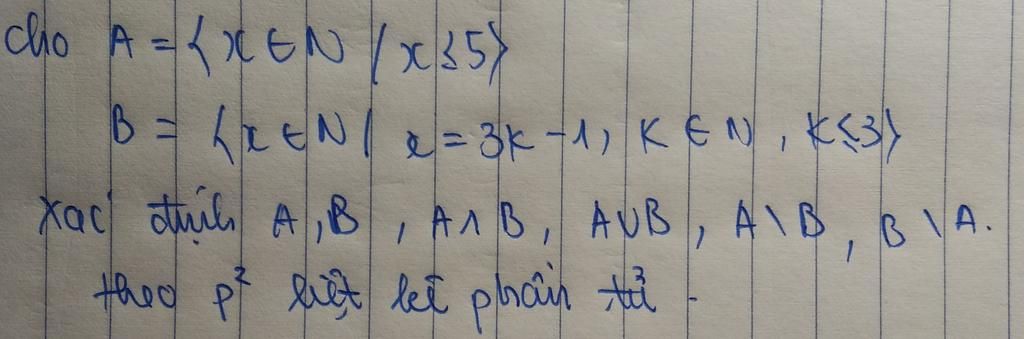 cho A = {x ∈ N / x ≤ 5}
B = {x ∈ N / x = 3k - 1, K ∈ N, K ≤ 3}
xác định A, B, A ∩ B, A ∪ B, A \ B, B \ A.
theo p² liệt kê phần tử.